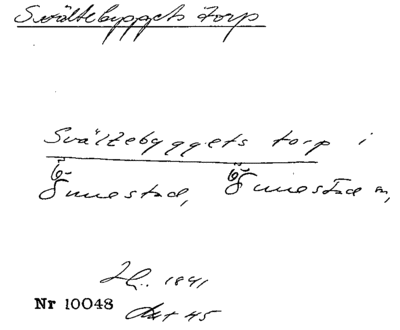 Svältebyggets torp
Svältebyggets torp i
Gunnestad, Gunnestad m,
1841
Nr 10048 Akt 45